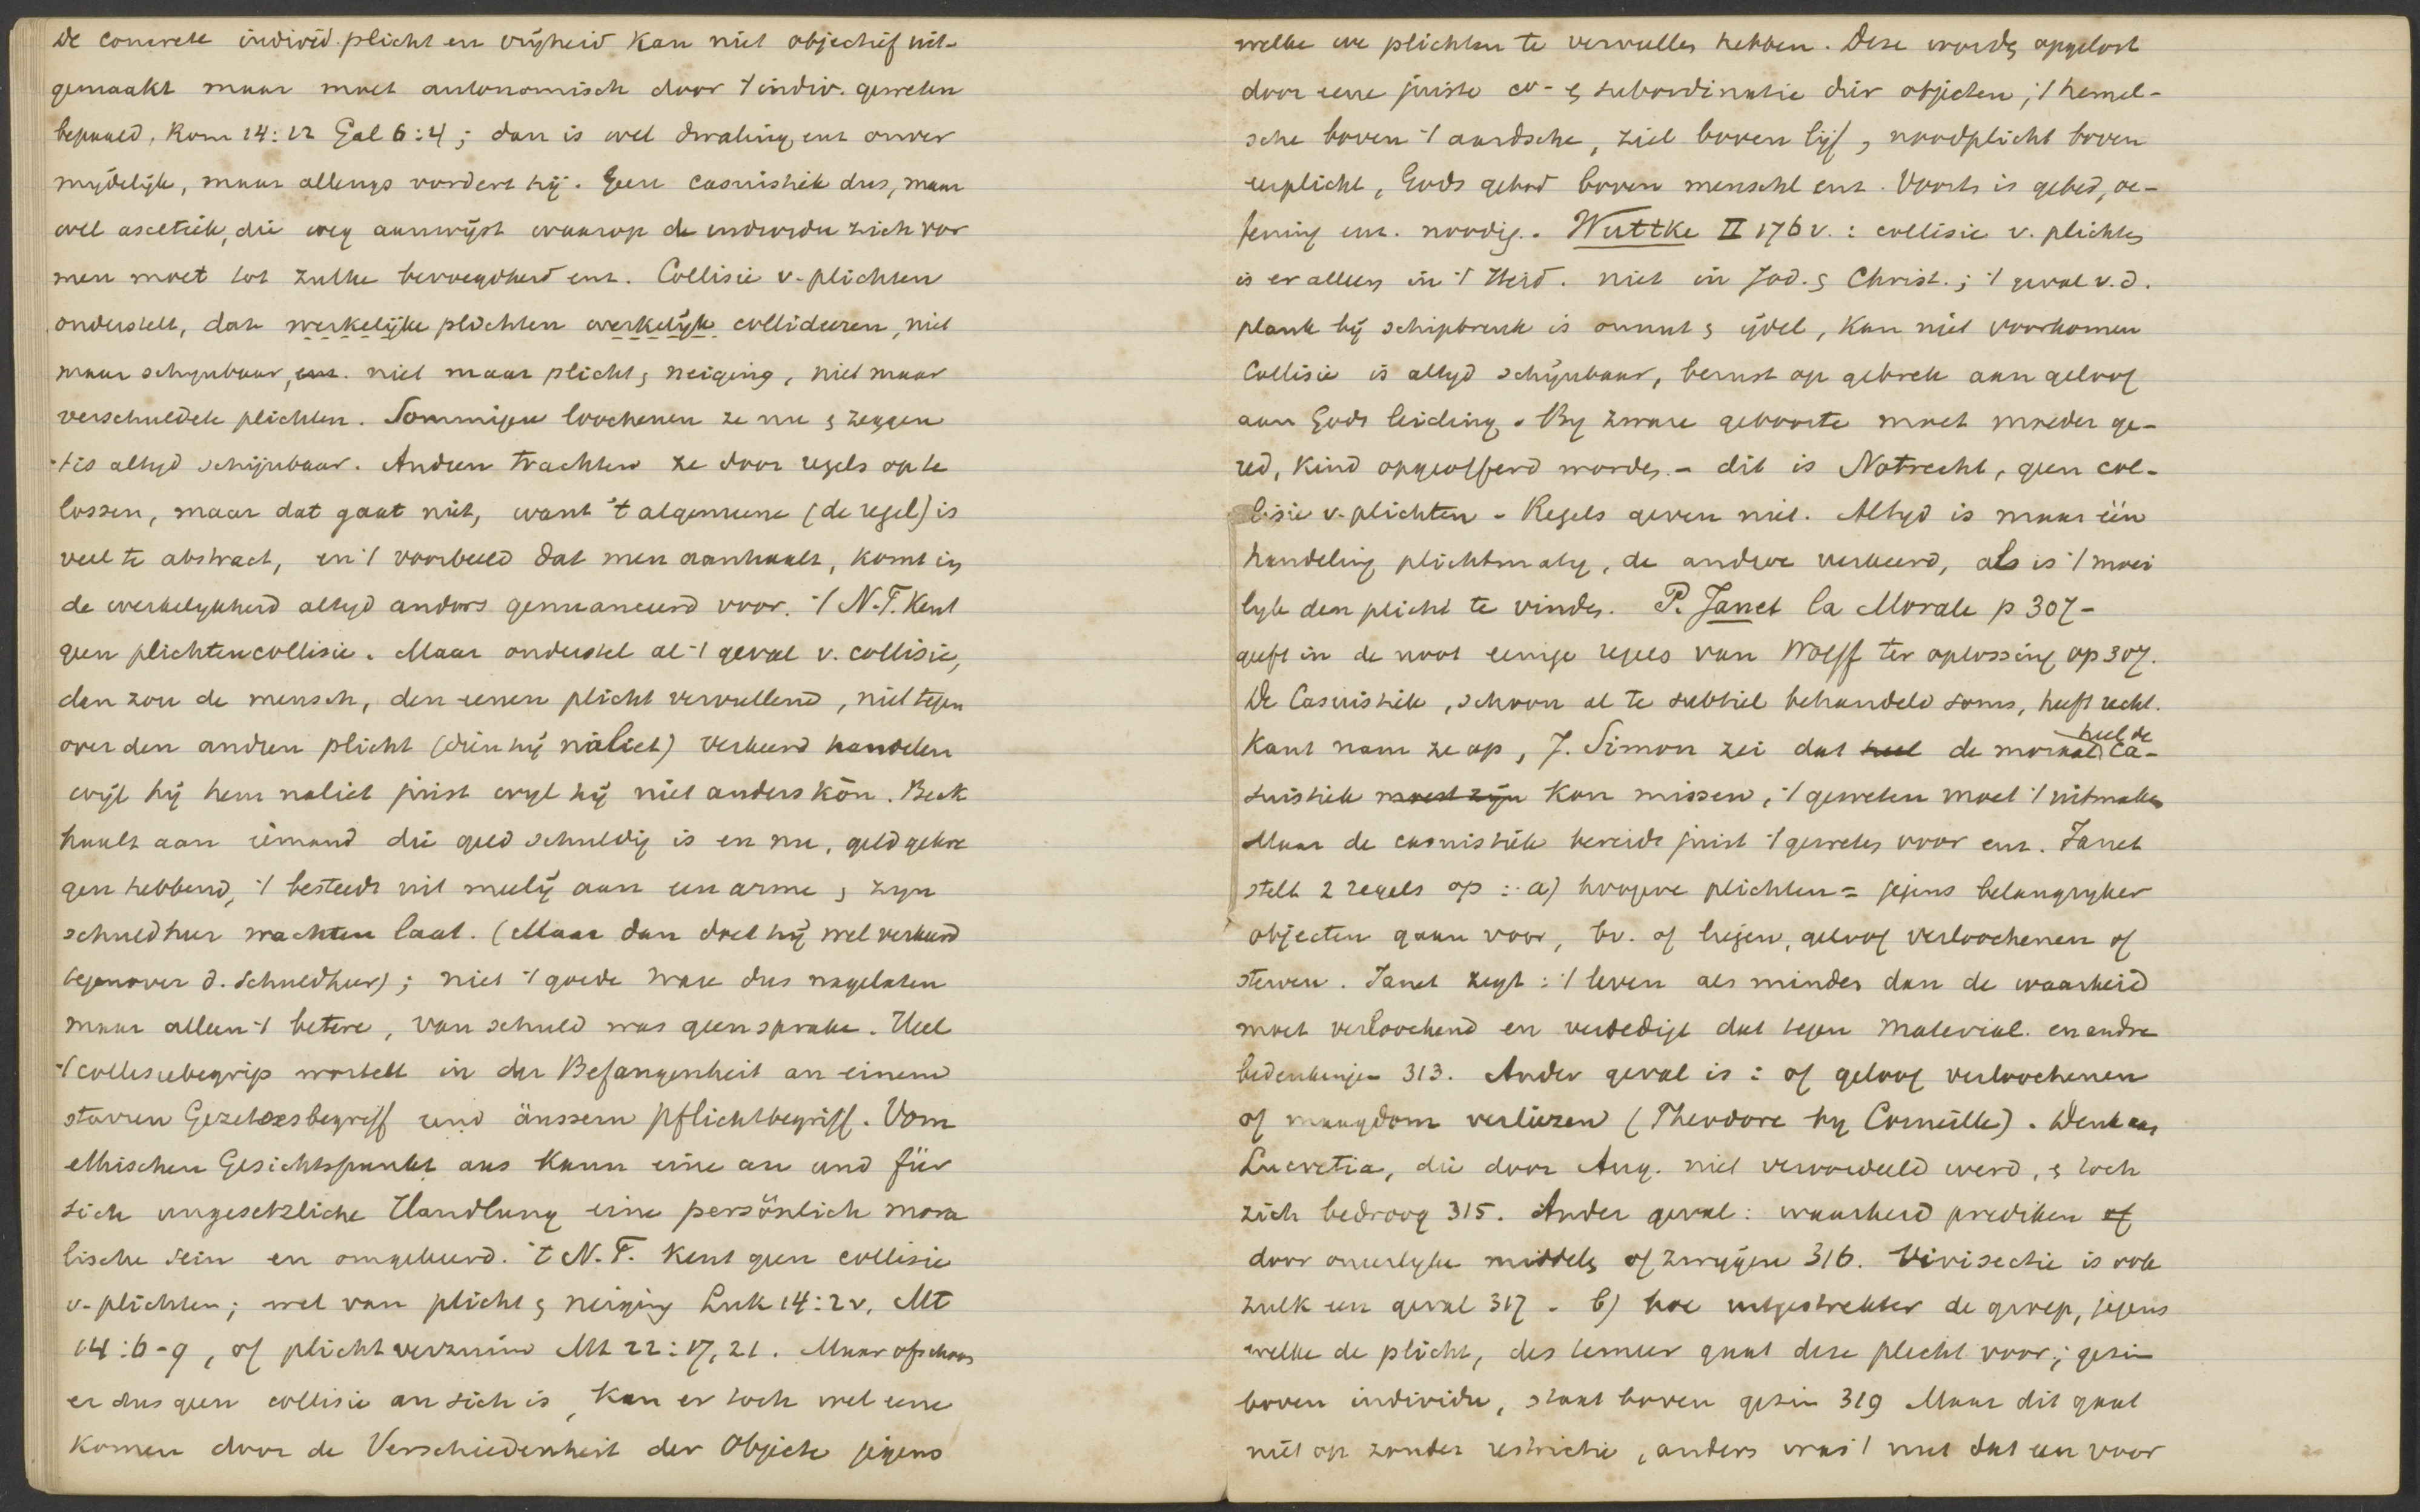 De concrete individ. plicht en vrijheid kan niet objectief uit-
gemaakt maar moet autonomisch door 't indiv. geweten
bepaald. Rom 14:22 Gal 6:4; dan is wel dwaling enz onver
mydelijk, maar allengs vordert hij. Geen casuistiek dus, maar
wel ascetiek, die weg aanwijst waarop de individu zich vor
men moet tot zulke bevoegdheid enz. Collisie v. plichten
onderstelt, dat werkelijke plichten werkelijk collideeren, niet
maar schijnbaar, enz. niet maar plicht & neiging, niet maar
verschuldete plichten. Sommigen loochenen ze nu & zeggen
't is altyd schijnbaar. Andren trachten ze door regels op te
lossen, maar dat gaat niet, want 't algemeene (de regel) is
veel te abstract, en 't voorbeeld dat men aanhaalt, komt in
de werkelykheid altyd anders genuanceerd voor. 't N.T. kent
geen plichtencollisie. Maar onderstel al 't geval v. collisie,
dan zou de mensch, den eenen plicht vervullend, niet tegen
over den andren plicht (dien hij naliet) verkeerd handelen
wijl hij hem naliet juist wyl hij niet anders kòn. Beck
haalt aan iemand die geld schuldig is en nu, geld gekre
gen hebbend, 't besteedt uit medelij aan een arme & zyn
schuldheer wachten laat. (Maar dan doet hij wel verkeerd
tegenover d. schuldheer); niet 't goede ware dus nagelaten
maar alleen 't betere, van schuld was geen sprake. Heel
't collisiebegrip wortelt in der Befangenheit an einem
starren Gezetzesbegriff und äussern Pflichtbegriff. Vom
ethischen Gesichtspunkt aus kann eine an und für
sich ungesetzliche Handlung eine persönlich mora
lische sein en omgekeerd. 't N.T. kent geen collisie
v. plichten; wel van plicht & neiging Luk 14:2v, Mt
14:6-9, of plichtverzuim Mt 22:17, 21. Maar ofschoon
er dus geen collisie an sich is, kan er toch wel eene
komen door de Verschiedenheit der Objecte jegens
welke we plichten te vervullen hebben. Deze worden opgelost
door eene juiste co- & subordinatie dier objecten; 't hemel-
sche boven 't aardsche, ziel boven lijf, noodplicht boven
eerplicht, Gods gebod boven menschl enz. Voorts is gebed, oe-
fening enz. noodig. Wuttke II 176 v.: collisie v. plichten
is er alleen in 't Heid. niet in Jod. & Christ.; 't geval v. d.
plank bij schipbreuk is onnut & ijdel, kan niet voorkomen
Collisie is altyd schijnbaar, berust op gebrek aan geloof
aan Gods leiding. By zware geboorte moet moeder ge-
red, kind opgeofferd worden. - dit is Notrecht, geen col-
lisie v. plichten - Regels geven niet. Altyd is maar één
handeling plichtmatig, de andere verkeerd, als is 't moei
lyk den plicht te vinden. P. Janet la Morale p 307-
geeft in de noot eenige regels van Wolff ter oplossing op 307.
De Casuistiek, schoon al te subtiel behandeld soms, heeft recht.
Kant nam ze op, J. Simon zei dat heel de moraal heel de Ca-
suistiek moest zijn kon missen, 't geweten moet 't uitmaken
Maar de casuistiek bereidt juist 't geweten voor enz. Janet
stelt 2 regels op: a) hoogere plichten = jegens belangryker
objecten gaan voor, bv. of liegen, geloof verloochenen of
sterven. Janet zegt: 't leven als minder dan de waarheid
moet verloochend en verdedigt dat tegen material. en andre
bedenkingen 313. Ander geval is: of geloof verloochenen
of maagdom verliezen (Theodore by Corneille). Denk aan
Lucretia, die door Aug. niet veroordeeld werd, & toch
zich bedroog 315. Ander geval: waarheid prediken of
door oneerlyke middels of zwygen 316. Vivisectie is ook
zulk een geval 317 - b) hoe uitgestrekter de groep, jegens
welke de plicht, des temeer gaat deze plicht voor; gezin
boven individu, staat boven gezin 319 Maar dit gaat
niet op zonder restrictie, anders was 't met dat een voor